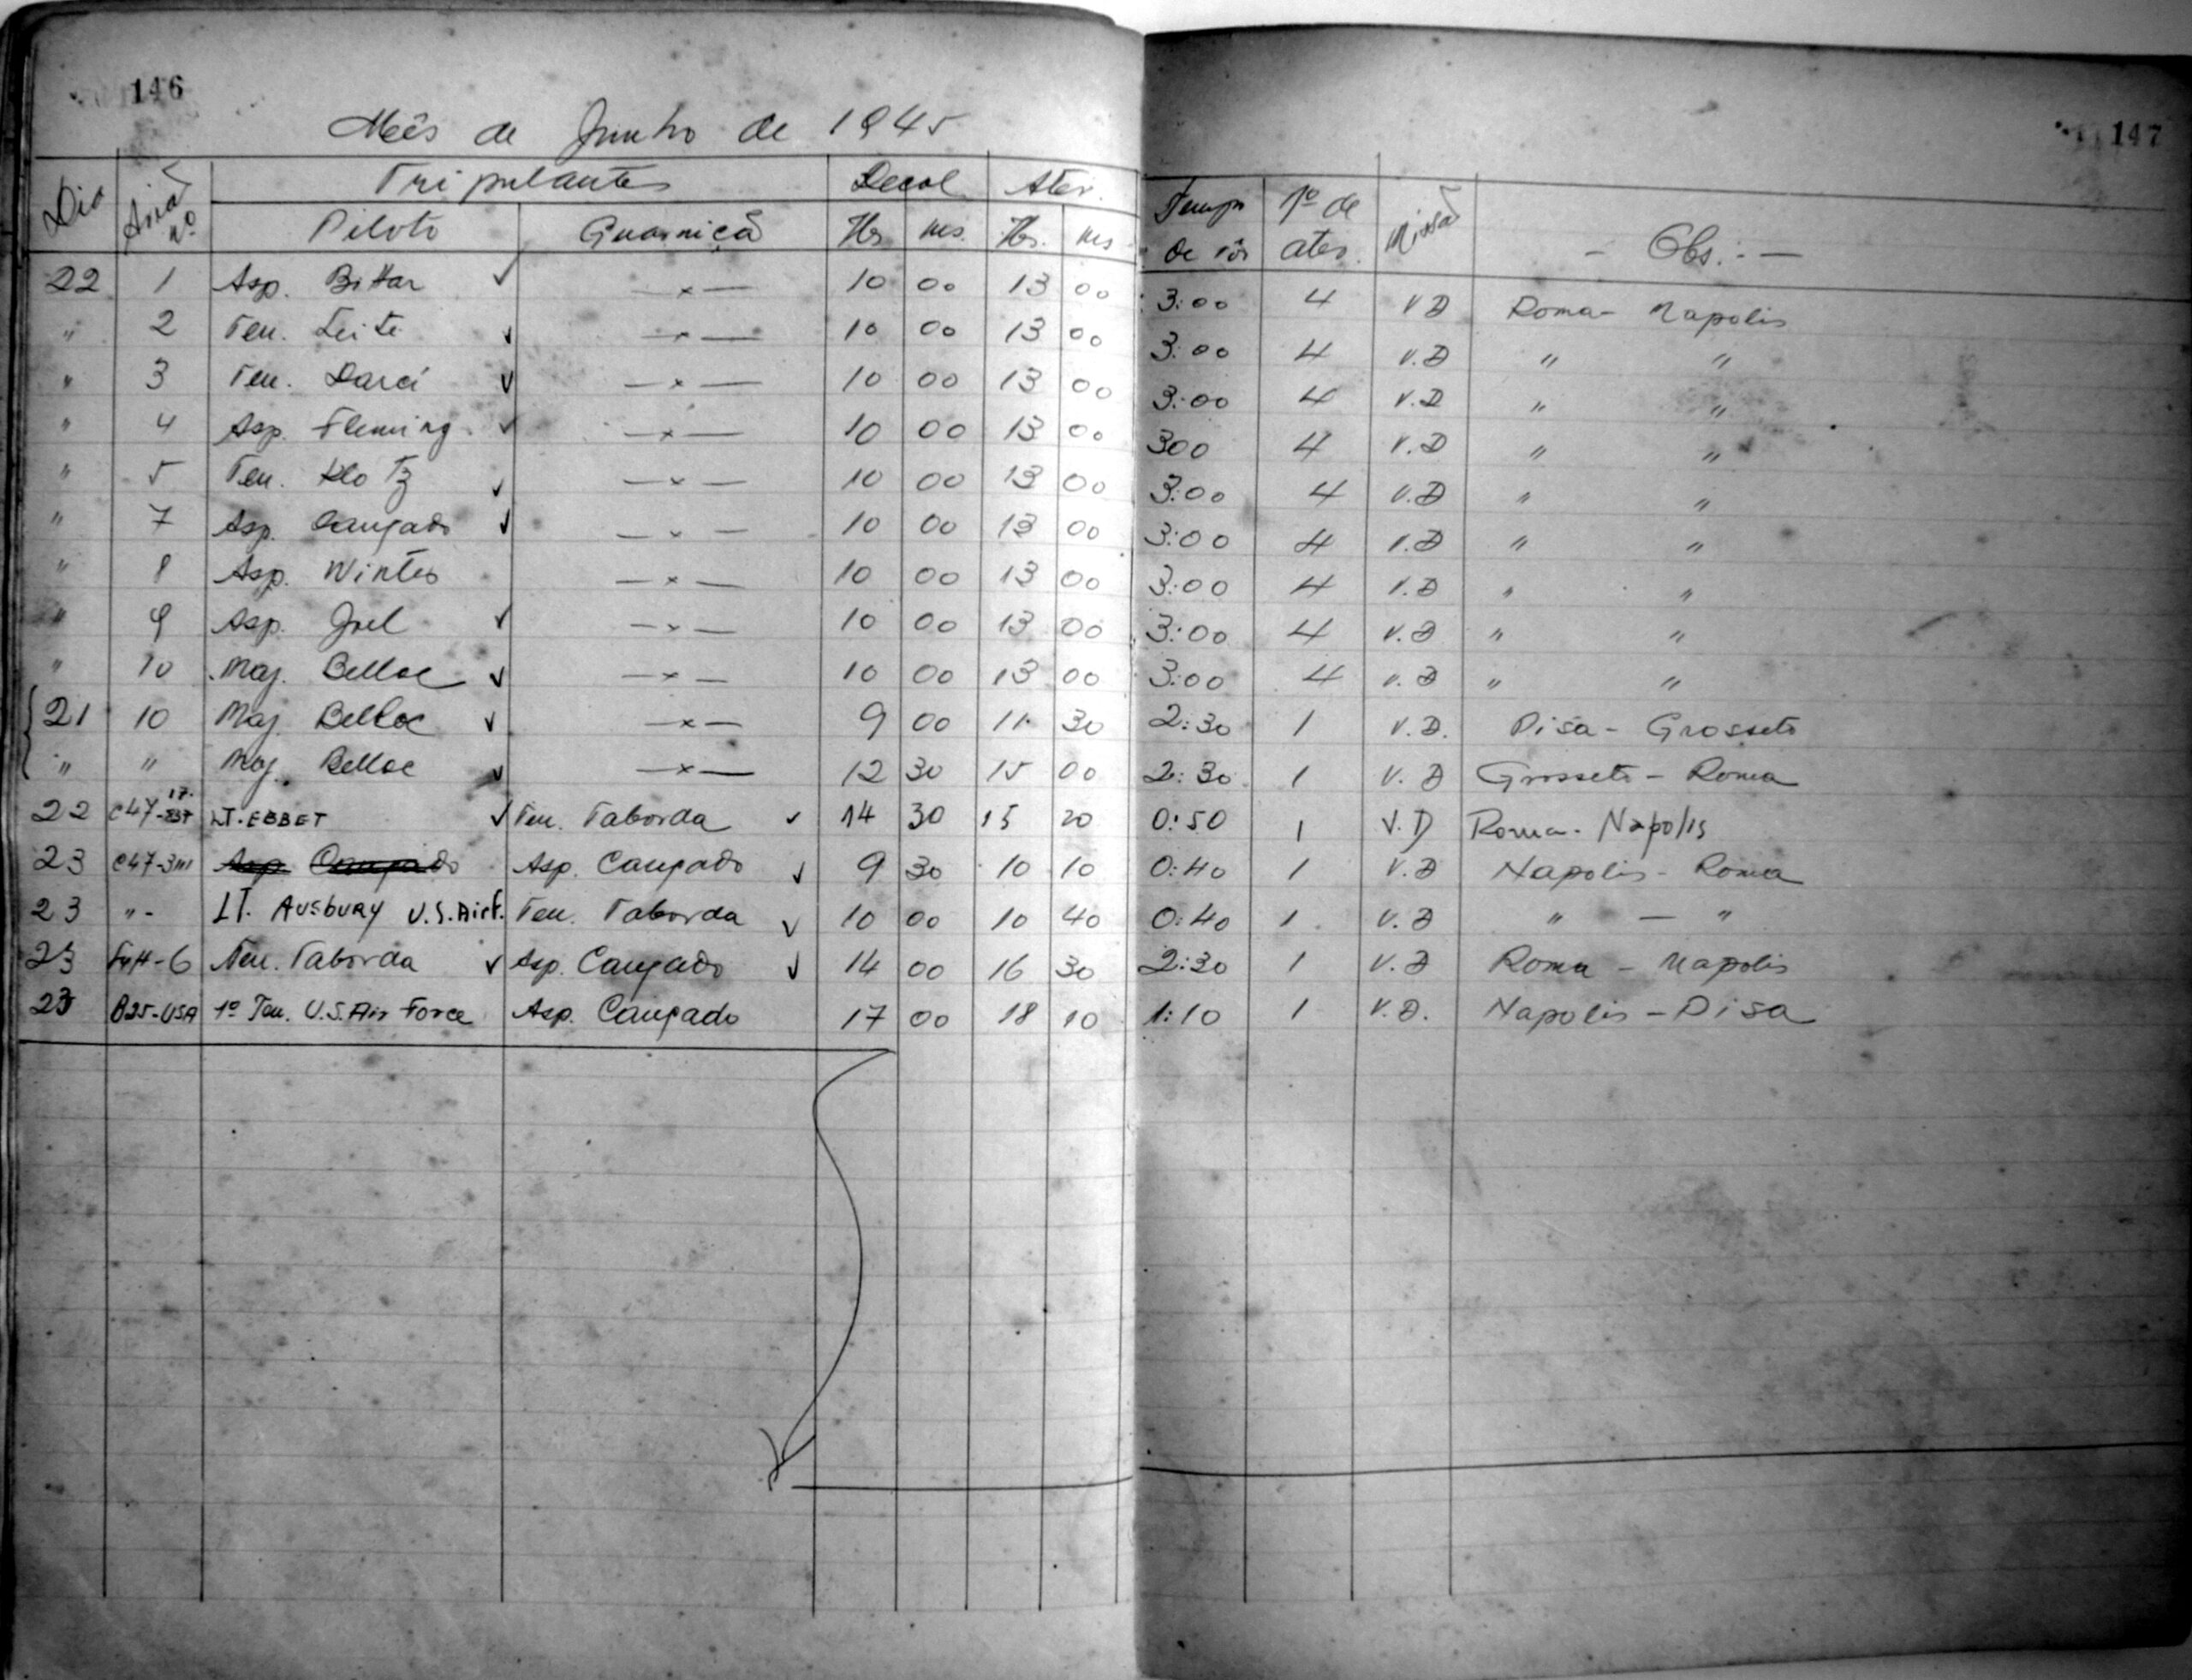 146
147
Mês de Junho de 1945
Dia Avião nº Tripulantes Decol Ater. Tempo de vôo Nº de ater. Missão - Obs.: -
Piloto Guarnição Hs ms. Hs. ms
22 1 Asp. Bittar ✓ —x— 10 00 13 00 3:00 4 V D Roma - Napolis
" 2 Ten. Leite ✓ —x— 10 00 13 00 3:00 4 V.D " "
" 3 Ten. Darci ✓ —x— 10 00 13 00 3:00 4 V.D " "
" 4 Asp. Fleming. ✓ —x— 10 00 13 00 300 4 V.D " "
" 5 Ten. Klotz ✓ —x— 10 00 13 00 3:00 4 V.D " "
" 7 Asp. Cançado ✓ —x— 10 00 13 00 3:00 4 V.D " "
" 8 Asp. Winter —x— 10 00 13 00 3:00 4 V.D " "
" 9 Asp. Joel ✓ —x— 10 00 13 00 3:00 4 V.D " "
" 10 Maj. Belloc ✓ —x— 10 00 13 00 3:00 4 V.D " "
21 10 Maj. Belloc ✓ —x— 9 00 11 30 2:30 1 V.D. Pisa - Grosseto
" " Maj. Belloc ✓ —x— 12 30 15 00 2:30 1 V.D Grosseto - Roma
22 C47- LT. EBBET ✓ Ten. Taborda ✓ 14 30 15 20 0:50 1 V.D Roma - Napolis
23 C47-3 Asp. Cançado Asp. Cançado ✓ 9 30 10 10 0:40 1 V.D Napolis - Roma
23 " - LT. AUSBURY U.S. AirF. Ten. Taborda ✓ 10 00 10 40 0:40 1 V.D " — "
23 -6 Ten. Taborda ✓ Asp. Cançado ✓ 14 00 16 30 2:30 1 V.D Roma - Napolis
23 B25-USA 1º Ten. U.S. Air Force Asp. Cançado 17 00 18 10 1:10 1 V.D. Napolis - Pisa